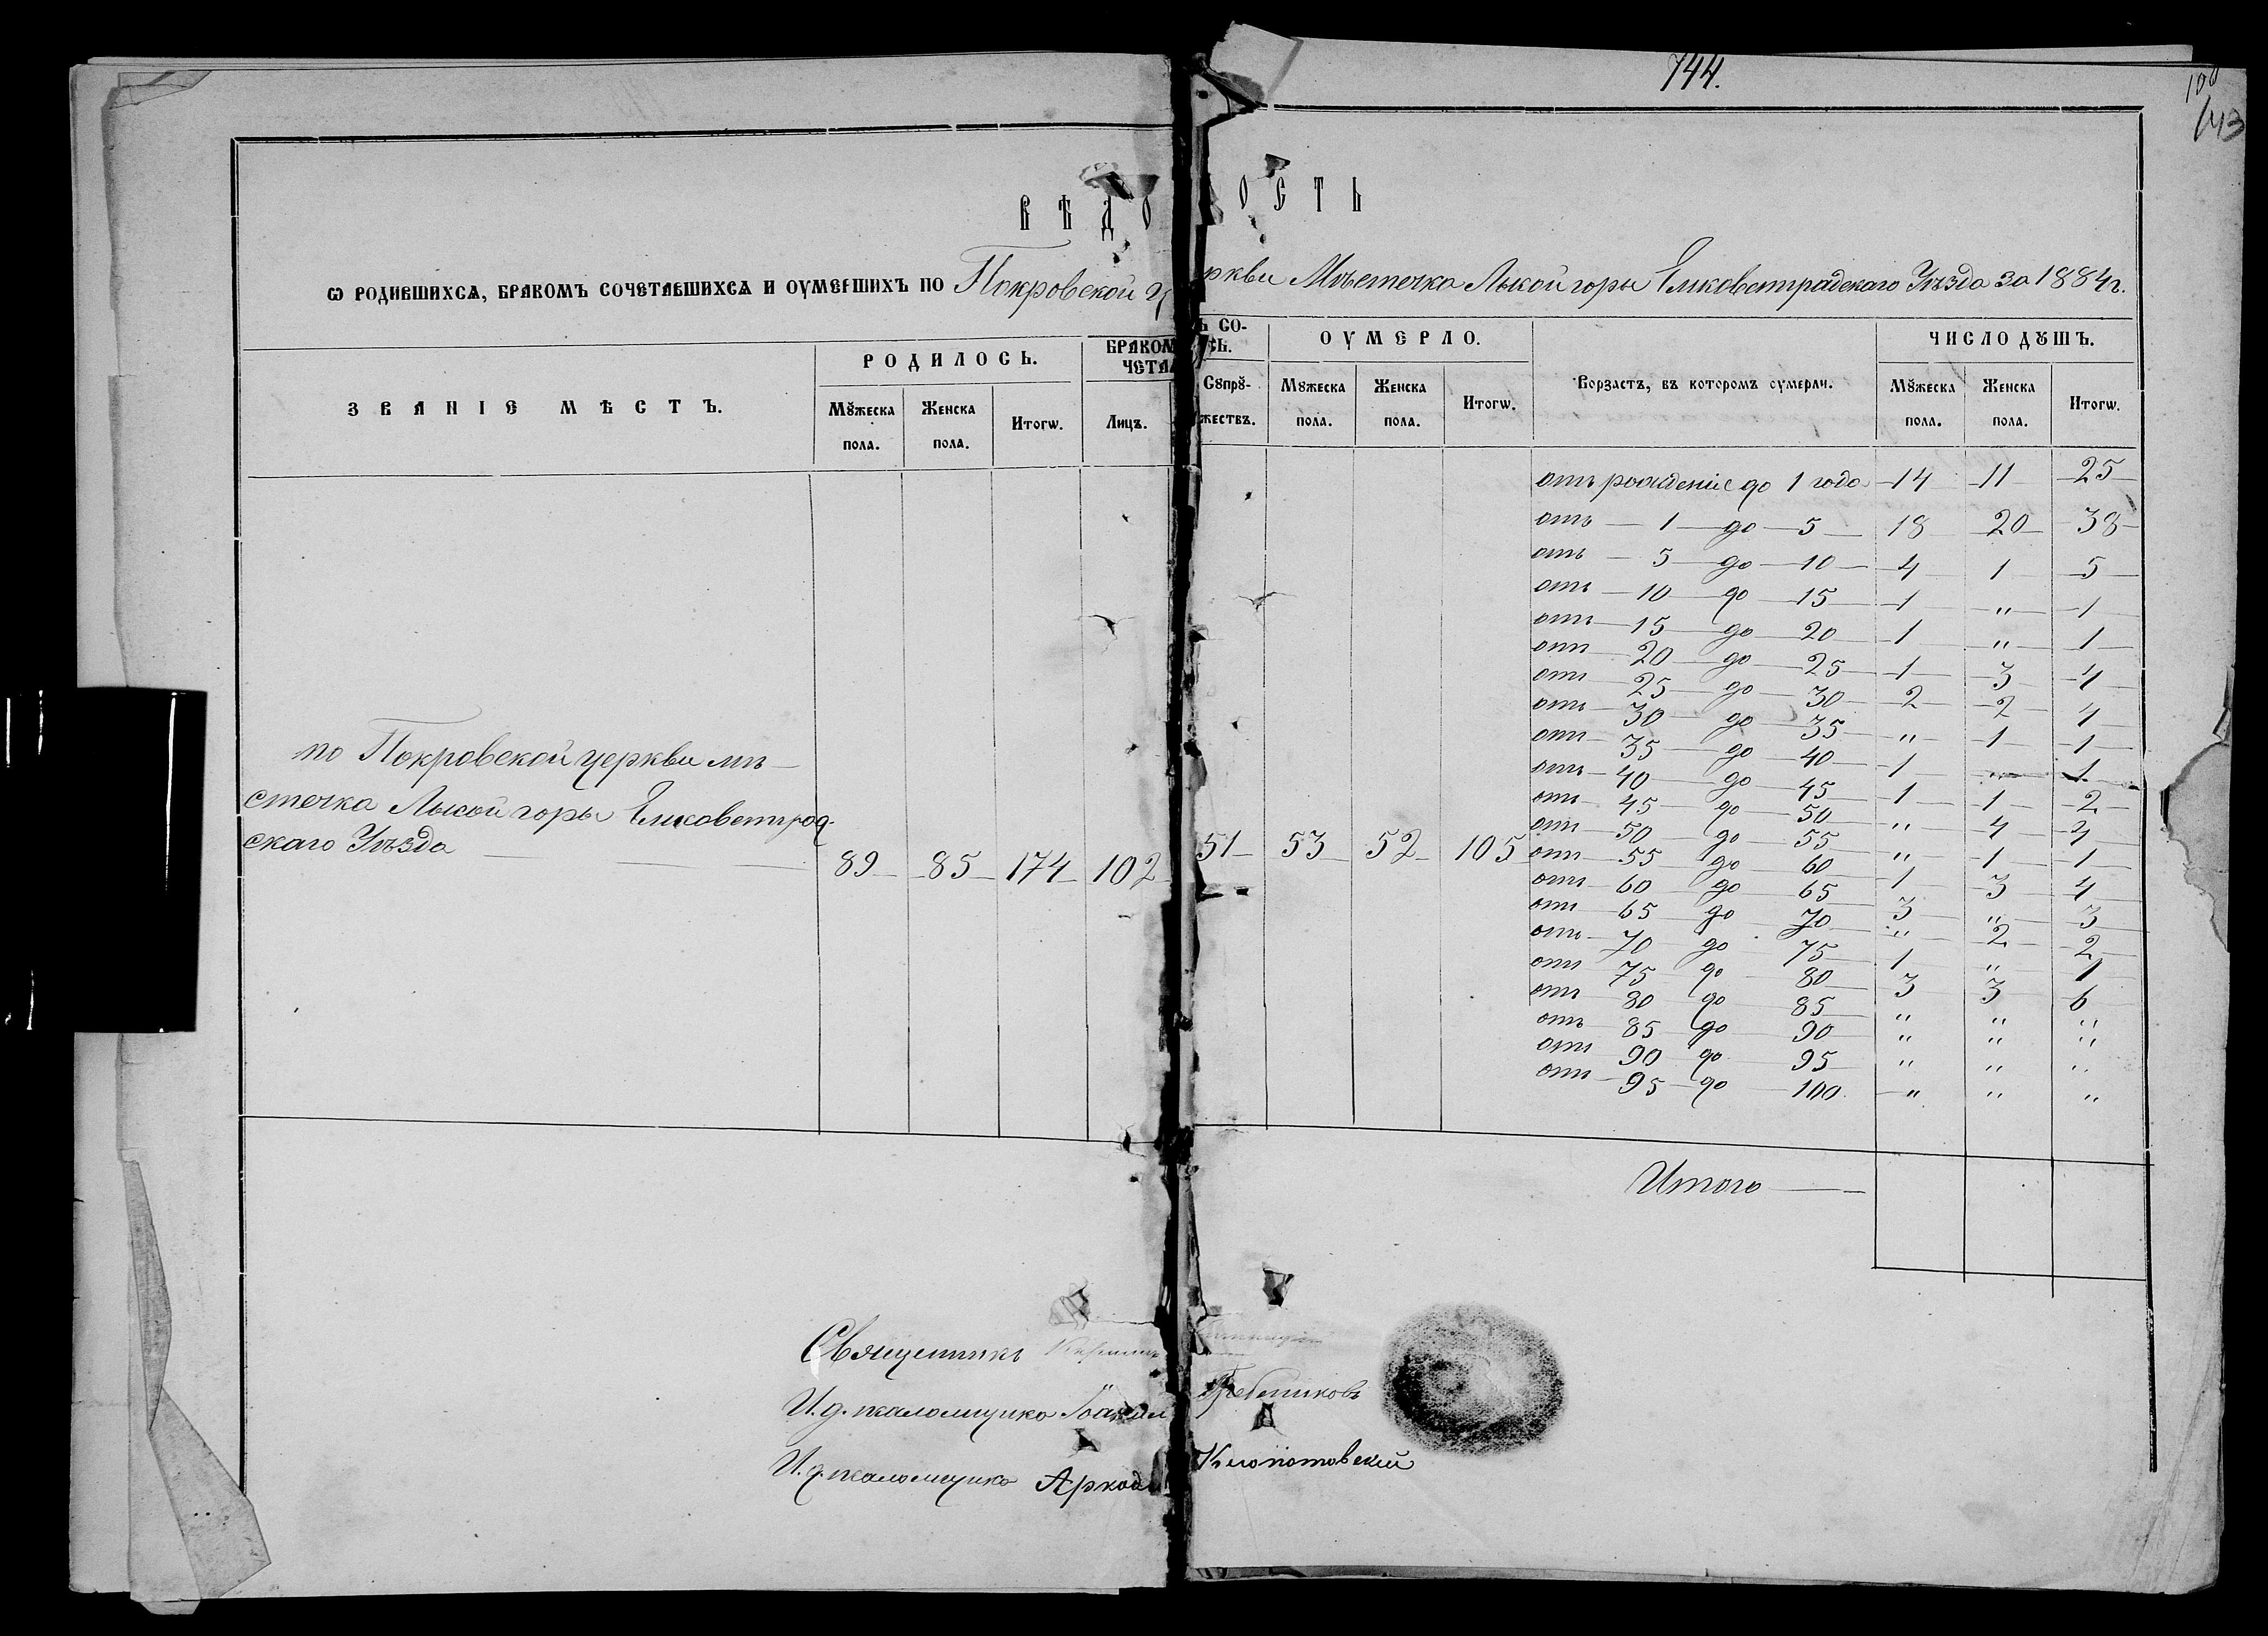 744.
100
143
ВѢДОМОСТЬ
Ѡ РОДИВШИХСѦ, БРАКОМЪ СОЧЕТАВШИХСѦ И ОУМЕРШИХЪ ПО Покровской церкви Мѣстечка Лысой горы Елисаветградскаго Уѣзда за 1884 г.
ЗВАНІЕ МѢСТЪ.
РОДИЛОСЬ.
Мꙋжеска пола.
Женска пола.
Итогѡ.
БРАКОМЪ СО-
ЧЕТАЛОСЬ.
Лицъ.
Сꙋпрꙋ-
жествъ.
ОУМЕРЛО.
Мꙋжеска пола.
Женска пола.
Итогѡ.
Ворзастъ, въ которомъ оумерли.
ЧИСЛО ДꙊШЪ.
Мꙋжеска пола.
Женска пола.
Итогѡ.
по Покровской церкви мѣ-
стечка Лысой горы Елисаветград-
скаго Уѣзда — 89 85 174 102 51 53 52 105
отъ рожденіе до 1 года 14 11 25
отъ 1 до 5 18 20 38
отъ 5 до 10 4 1 5
отъ 10 до 15 1 " 1
отъ 15 до 20 1 " 1
отъ 20 до 25 1 3 4
отъ 25 до 30 2 2 4
отъ 30 до 35 " 1 1
отъ 35 до 40 1 " 1
отъ 40 до 45 1 1 2
отъ 45 до 50 " 4 4
отъ 50 до 55 " 1 1
отъ 55 до 60 1 3 4
отъ 60 до 65 3 " 3
отъ 65 до 70 " 2 2
отъ 70 до 75 1 " 1
отъ 75 до 80 3 3 6
отъ 80 до 85 " " "
отъ 85 до 90 " " "
отъ 90 до 95 " " "
отъ 95 до 100 " " "
Итого —
Священникъ
И. д. псаломщика Іоаким Гребениковъ
И. д. псаломщика Аркадій Клопотовскій